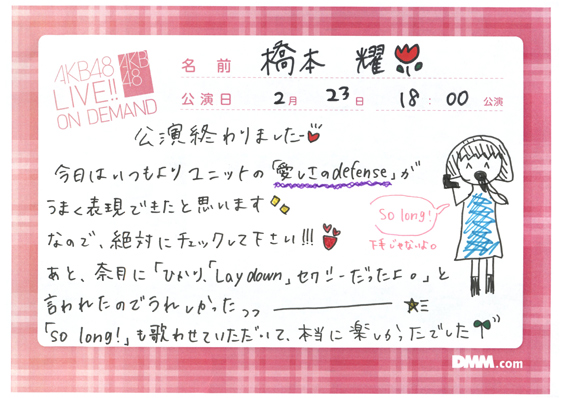 AKB48
LIVE!!
ON DEMAND
AKB
48
名前 橋本 耀
公演日 2月 23日 18:00 公演
公演終わりましたー
今日はいつもよりユニットの「愛しさのdefense」が
うまく表現できたと思います
なので、絶対にチェックして下さい!!!
あと、奈月に「ひかり、「Lay down」セクシーだったよ。」と
言われたのでうれしかったっっ
「So long!」も歌わせていただいて、本当に楽しかったでした
So long!
下手じゃないよ。
DMM.com